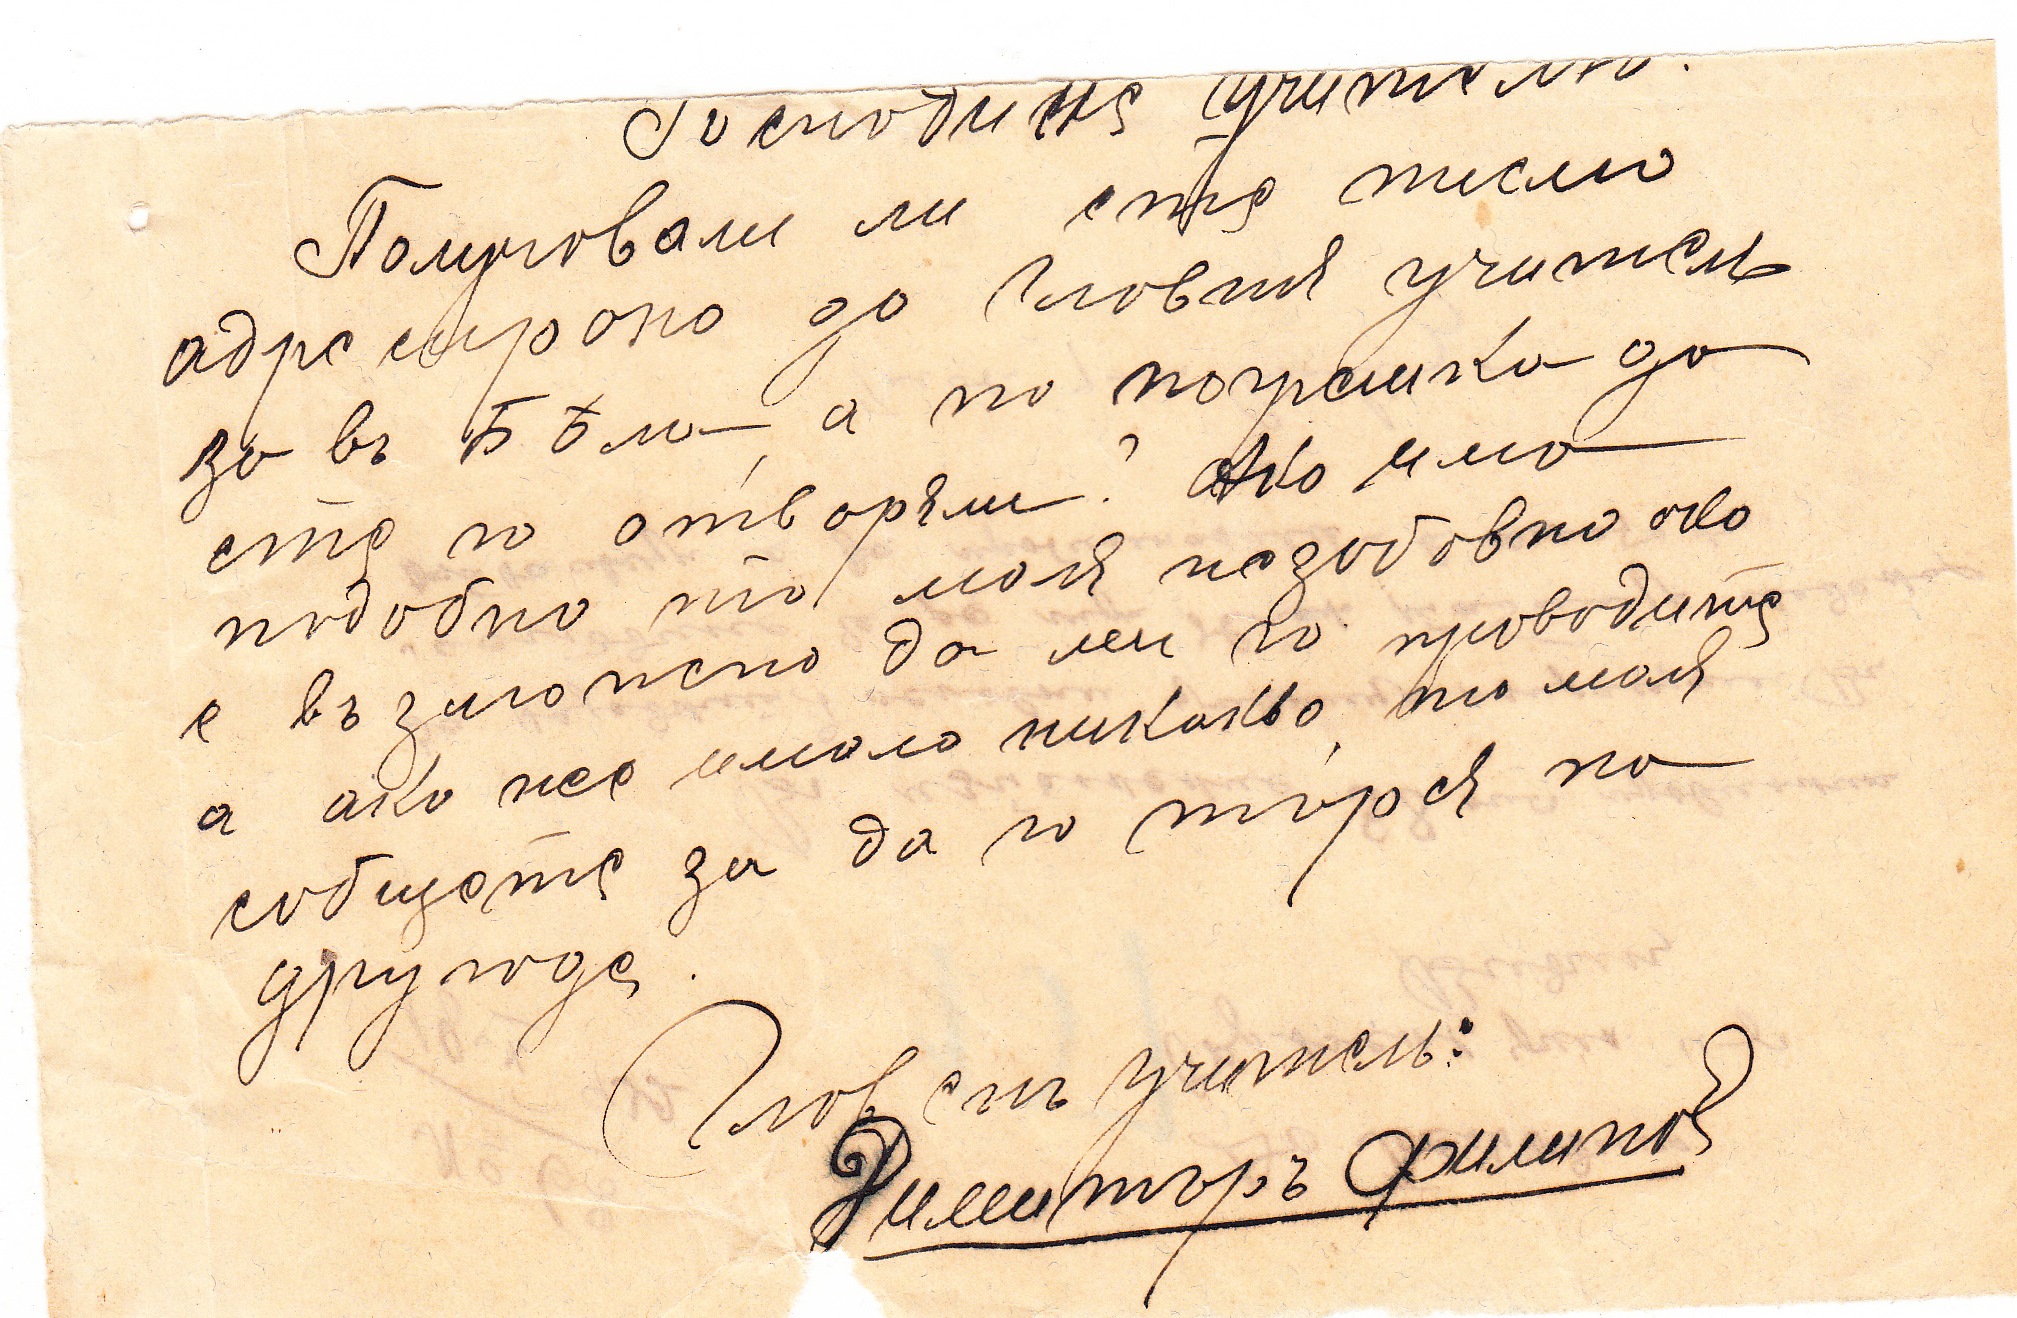 Господине учителю.
Получовали ли сте писмо
адресирано до Главния учитель
за въ Бѣла, а по погрешка да
сте го отворяли? Ако има
подобно то моля незабовно ако
е възможно да ми го проводите
а ако нее имало никакво, то моля
собщете за да го търся на
другаде.
Глав енъ учитель:
Димитъръ Филипов